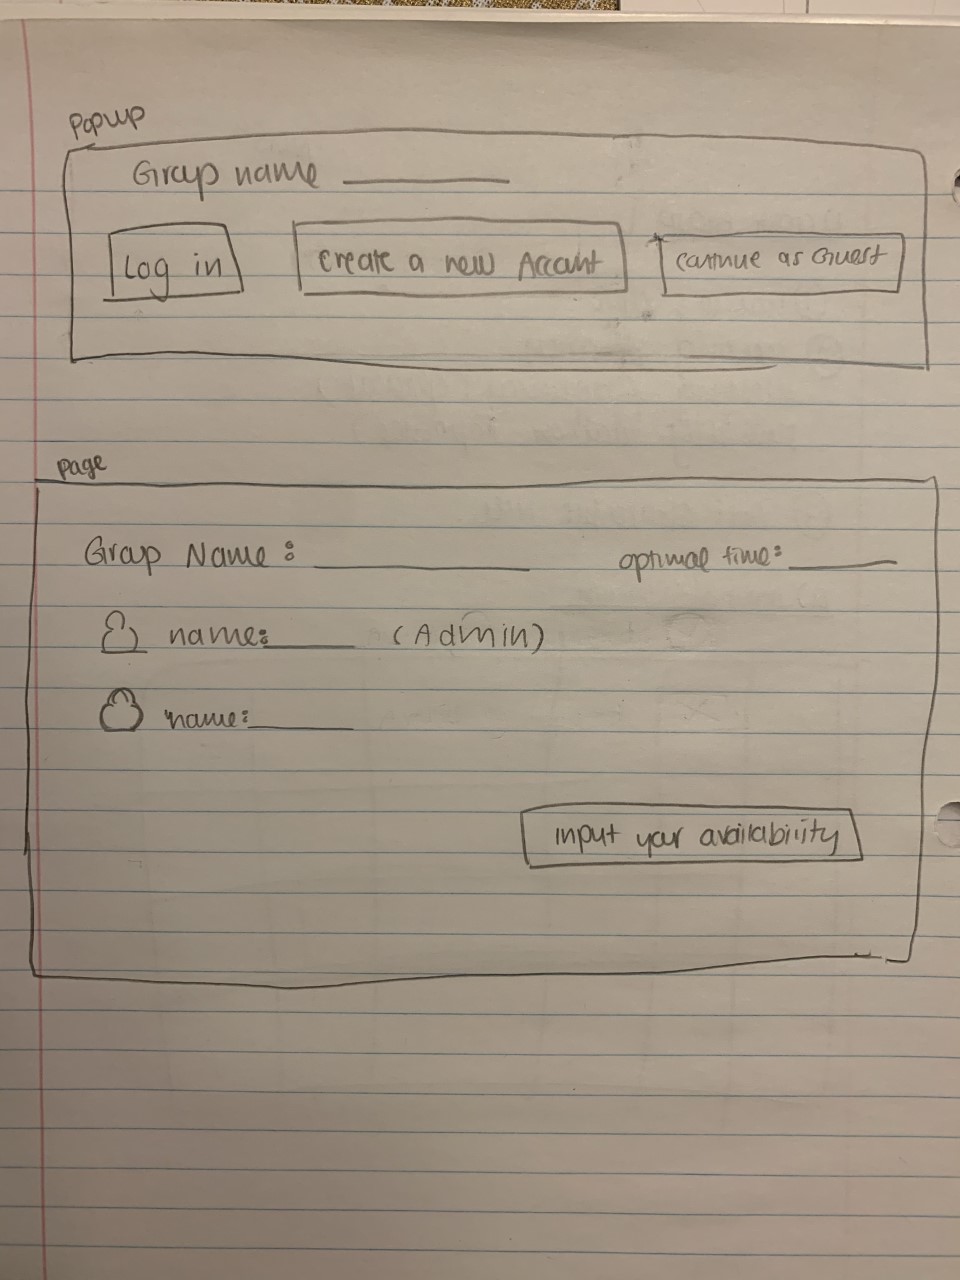 Popup
Group name
Log in
Create a new Account
continue as Guest
page
Group Name:
optimal time:
name: (Admin)
name:
input your availability